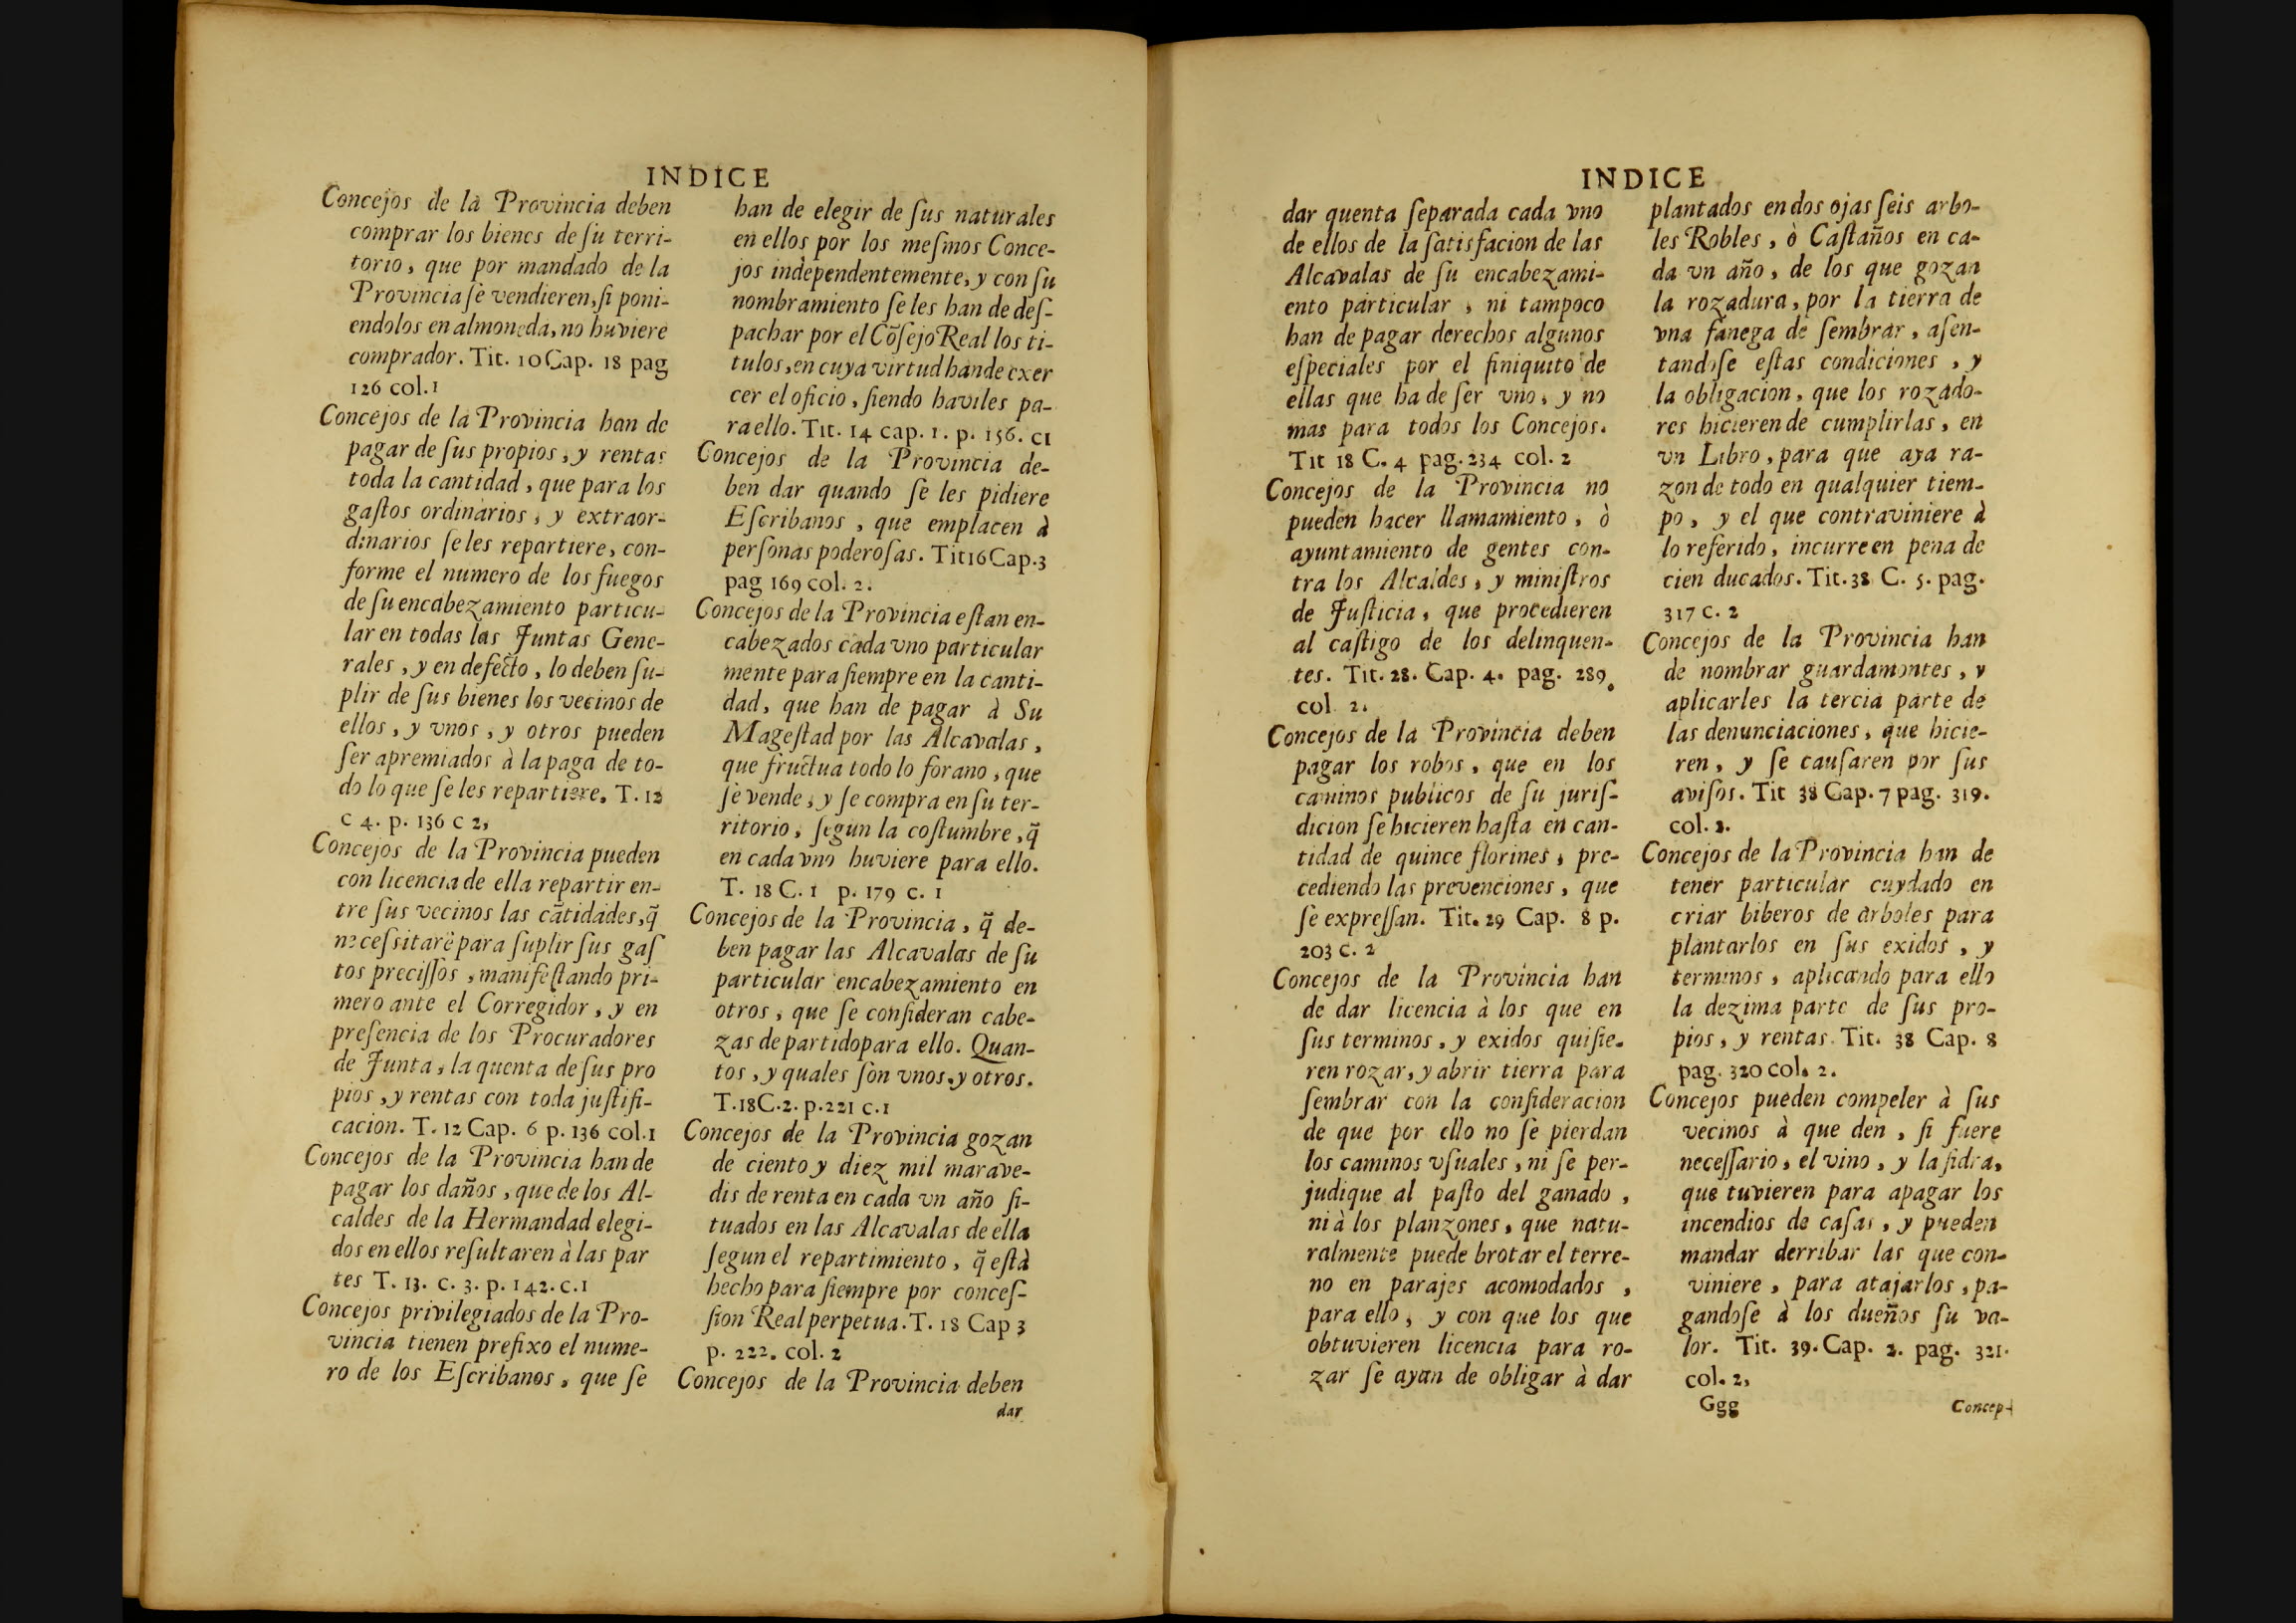 INDICE
Concejos de la Provincia deben
comprar los bienes de ſu terri-
torio, que por mandado de la
Provincia ſe vendieren, ſi poni-
endolos en almoneda, no huviere
comprador. Tit. 10 Cap. 18 pag
126 col.1
Concejos de la Provincia han de
pagar de ſus propios, y rentas
toda la cantidad, que para los
gaſtos ordinarios, y extraor-
dinarios ſe les repartiere, con-
forme el numero de los fuegos
de ſu encabezamiento particu-
lar en todas las Juntas Gene-
rales, y en defecto, lo deben ſu-
plir de ſus bienes los vecinos de
ellos, y vnos, y otros pueden
ſer apremiados à la paga de to-
do lo que ſe les repartiere. T. 12
C 4. p. 136 c 2,
Concejos de la Provincia pueden
con licencia de ella repartir en-
tre ſus vecinos las cãtidades, q̃
neceſsitarẽ para ſuplir ſus gaſ
tos preciſſos, manifeſtando pri-
mero ante el Corregidor, y en
preſencia de los Procuradores
de Junta, la quenta de ſus pro
pios, y rentas con toda juſtifi-
cacion. T. 12 Cap. 6 p. 136 col.1
Concejos de la Provincia han de
pagar los daños, que de los Al-
caldes de la Hermandad elegi-
dos en ellos reſultaren à las par
tes T. 13. c. 3. p. 142. c.1
Concejos privilegiados de la Pro-
vincia tienen prefixo el nume-
ro de los Eſcribanos, que ſe
han de elegir de ſus naturales
en ellos por los meſmos Conce-
jos independentemente, y con ſu
nombramiento ſe les han de deſ-
pachar por el Cõſejo Real los ti-
tulos, en cuya virtud han de exer
cer el oficio, ſiendo haviles pa-
ra ello. Tit. 14 cap. 1. p. 156. c1
Concejos de la Provincia de-
ben dar quando ſe les pidiere
Eſcribanos, que emplacen à
perſonas poderoſas. Tit16Cap.3
pag 169 col. 2.
Concejos de la Provincia eſtan en-
cabezados cada vno particular
mente para ſiempre en la canti-
dad, que han de pagar à Su
Mageſtad por las Alcavalas,
que fructua todo lo forano, que
ſe vende, y ſe compra en ſu ter-
ritorio, ſegun la coſtumbre, q̃
en cada vno huviere para ello.
T. 18 C. 1 p. 179 c. 1
Concejos de la Provincia, q̃ de-
ben pagar las Alcavalas de ſu
particular encabezamiento en
otros, que ſe conſideran cabe-
zas de partido para ello. Quan-
tos, y quales ſon vnos, y otros.
T.18C.2. p.221 c.1
Concejos de la Provincia gozan
de ciento y diez mil marave-
dis de renta en cada vn año ſi-
tuados en las Alcavalas de ella
ſegun el repartimiento, q̃ eſtà
hecho para ſiempre por conceſ-
ſion Real perpetua. T. 18 Cap 3
p. 222. col. 2
Concejos de la Provincia deben
dar
INDICE
dar quenta ſeparada cada vno
de ellos de la ſatisfacion de las
Alcavalas de ſu encabezami-
ento particular, ni tampoco
han de pagar derechos algunos
eſpeciales por el finiquito de
ellas que ha de ſer vno, y no
mas para todos los Concejos.
Tit 18 C. 4 pag. 234 col. 2
Concejos de la Provincia no
pueden hacer llamamiento, ò
ayuntamiento de gentes con-
tra los Alcaldes, y miniſtros
de Juſticia, que procedieren
al caſtigo de los delinquen-
tes. Tit. 28. Cap. 4. pag. 289.
col 2.
Concejos de la Provincia deben
pagar los robos, que en los
caminos publicos de ſu juriſ-
dicion ſe hicieren haſta en can-
tidad de quince florines, pre-
cediendo las prevenciones, que
ſe expreſſan. Tit. 29 Cap. 8 p.
203 c. 2
Concejos de la Provincia han
de dar licencia à los que en
ſus terminos, y exidos quiſie-
ren rozar, y abrir tierra para
ſembrar con la conſideracion
de que por ello no ſe pierdan
los caminos vſuales, ni ſe per-
judique al paſto del ganado,
ni à los planzones, que natu-
ralmente puede brotar el terre-
no en parajes acomodados,
para ello, y con que los que
obtuvieren licencia para ro-
zar ſe ayan de obligar à dar
plantados en dos ojas ſeis arbo-
les Robles, ò Caſtaños en ca-
da vn año, de los que gozan
la rozadura, por la tierra de
vna fanega de ſembrar, aſen-
tandoſe eſtas condiciones, y
la obligacion, que los rozado-
res hicieren de cumplirlas, en
vn Libro, para que aya ra-
zon de todo en qualquier tiem-
po, y el que contraviniere à
lo referido, incurre en pena de
cien ducados. Tit. 38 C. 5. pag.
317 c. 2
Concejos de la Provincia han
de nombrar guardamontes, y
aplicarles la tercia parte de
las denunciaciones, que hicie-
ren, y ſe cauſaren por ſus
aviſos. Tit 38 Cap. 7 pag. 319.
col. 2.
Concejos de la Provincia han de
tener particular cuydado en
criar biberos de arboles para
plantarlos en ſus exidos, y
terminos, aplicando para ello
la dezima parte de ſus pro-
pios, y rentas. Tit. 38 Cap. 8
pag. 320 col. 2.
Concejos pueden compeler à ſus
vecinos à que den, ſi fuere
neceſſario, el vino, y la ſidra,
que tuvieren para apagar los
incendios de caſas, y pueden
mandar derribar las que con-
viniere, para atajarlos, pa-
gandoſe à los dueños ſu va-
lor. Tit. 39. Cap. 2. pag. 321.
col. 2,
Ggg Concep-